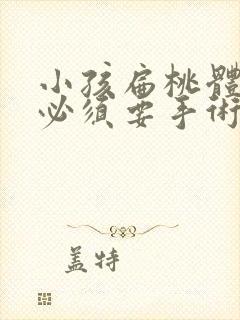 小孩扁桃體
必須要手術
蓋特